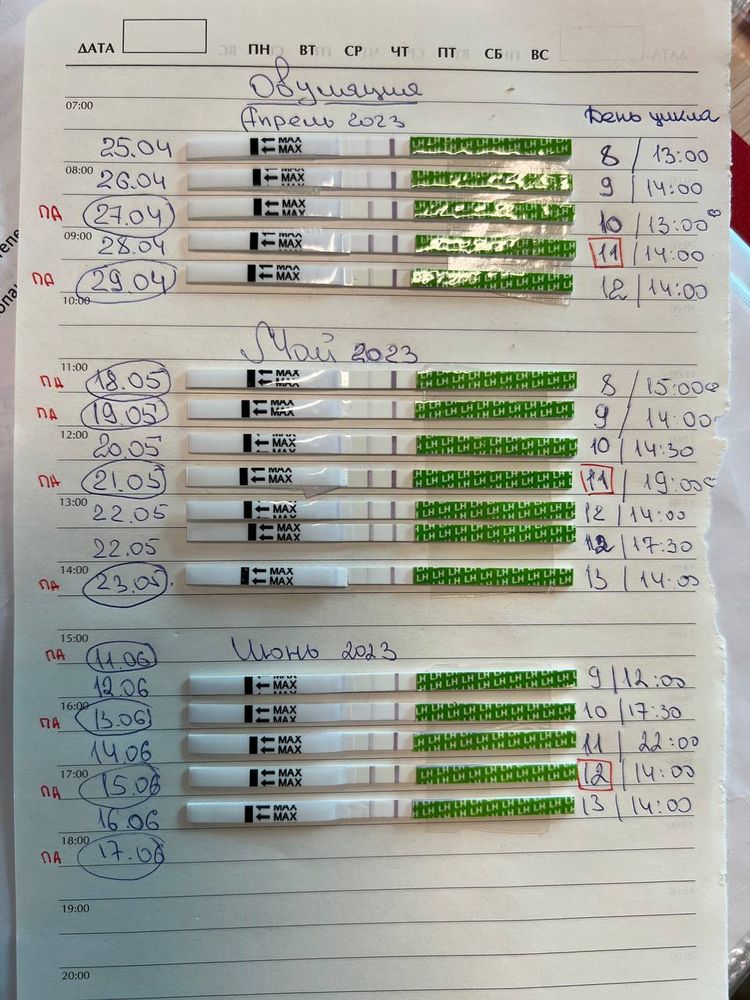 ДАТА ПН ВТ СР ЧТ ПТ СБ ВС
Овуляция
07:00
Апрель 2023 День цикла
25.04 MAX MAX 8 / 13:00
08:00
26.04 MAX MAX 9 / 14:00
ПА 27.04 MAX MAX 10 / 13:00
09:00
28.04 MAX MAX 11 / 14:00
ПА 29.04 MAX MAX 12 / 14:00
10:00
Май 2023
11:00
ПА 18.05 MAX MAX 8 / 15:00
ПА 19.05 MAX MAX 9 / 14:00
12:00
20.05 MAX MAX 10 / 14:30
ПА 21.05 MAX MAX 11 / 19:00
13:00
22.05 MAX MAX 12 / 14:00
22.05 MAX MAX 12 / 17:30
14:00
ПА 23.05 MAX MAX 13 / 14:00
15:00
Июнь 2023
ПА 11.06
12.06 MAX MAX 9 / 12:00
16:00
ПА 13.06 MAX MAX 10 / 17:30
14.06 MAX MAX 11 / 22:00
17:00
ПА 15.06 MAX MAX 12 / 14:00
16.06 MAX MAX 13 / 14:00
18:00
ПА 17.06
19:00
20:00